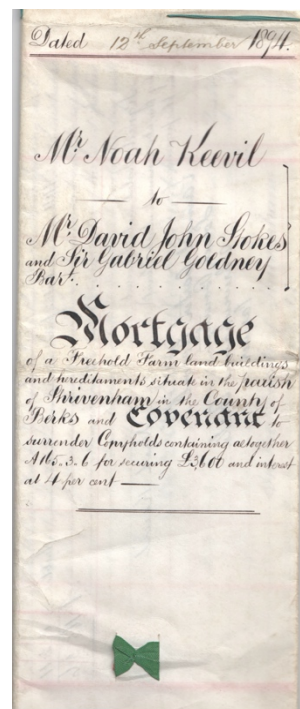 Dated 12th September 1894.
Mr Noah Keevil
to
Mr David John Stokes
and Sir Gabriel Goldney
Bart.
Mortgage
of a Freehold Farm land buildings
and hereditaments situate in the parish
of Shrivenham in the County of
Berks and Covenant to
surrender Copyholds containing altogether
A165.3.6 for securing £3600 and interest
at 4 per cent